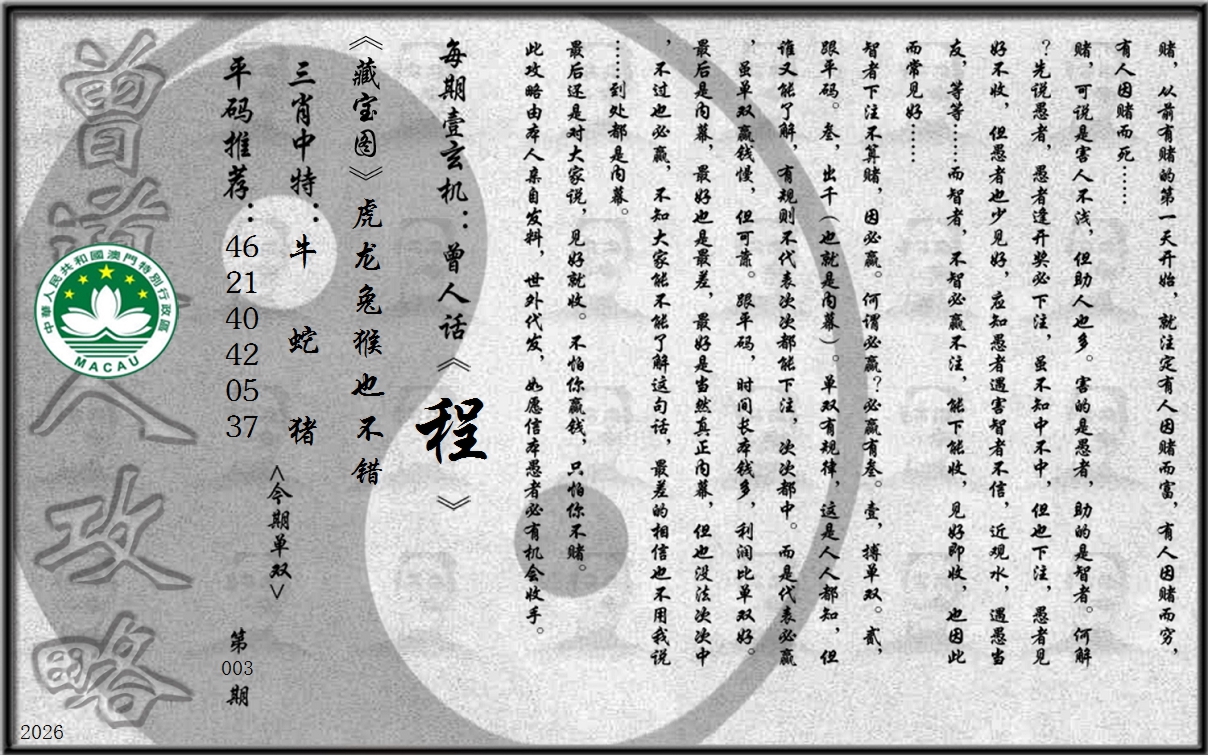 赌，从前有赌的第一天开始，就注定有人因赌而富，有人因赌而穷，
有人因赌而死……
赌，可说是害人不浅，但助人也多。害的是愚者，助的是智者。何解
？先说愚者，愚者逢开奖必下注，虽不知中不中，但也下注，愚者见
好不收，但愚者也少见好，应知愚者遇害智者不信，近观水，遇愚当
友，等等……而智者，不智必赢不注，能下能收，见好即收，也因此
而常见好……
智者下注不算赌，因必赢。何谓必赢？必赢有叁。壹，搏单双。贰，
跟平码。叁，出千（也就是内幕）。单双有规律，这是人人都知，但
谁又能了解，有规则不代表次次都能下注，次次都中。而是代表必赢
，虽单双赢钱慢，但可靠。跟平码，时间长本钱多，利润比单双好。
最后是内幕，最好也是最差，最好是当然真正内幕，但也没法次次中
，不过也必赢，不知大家能不能了解这句话，最差的相信也不用我说
……到处都是内幕。
最后还是对大家说，见好就收。不怕你赢钱，只怕你不赌。
此攻略由本人亲自发料，世外代发，如愿信本愚者必有机会收手。
每期壹玄机：曾人话《程》
《藏宝图》虎龙兔猴也不错
三肖中特：牛 蛇 猪
<今期单双>
平码推荐：46 21 40 42 05 37
第003期
曾道人攻略
中華人民共和國澳門特別行政區
MACAU
2026